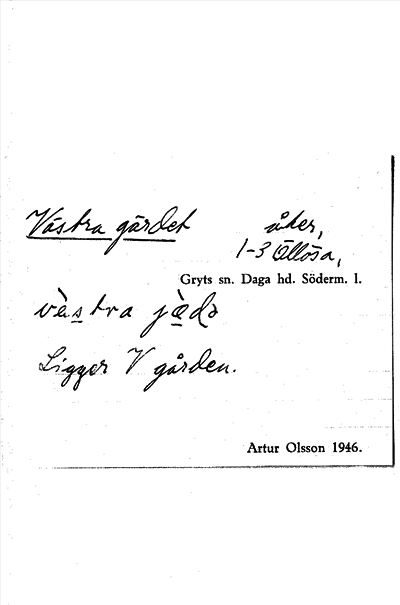 Västra gärdet åker,
1-3 Ällösa,
Gryts sn. Daga hd. Söderm. l.
västra
Ligger V gården.
Artur Olsson 1946.